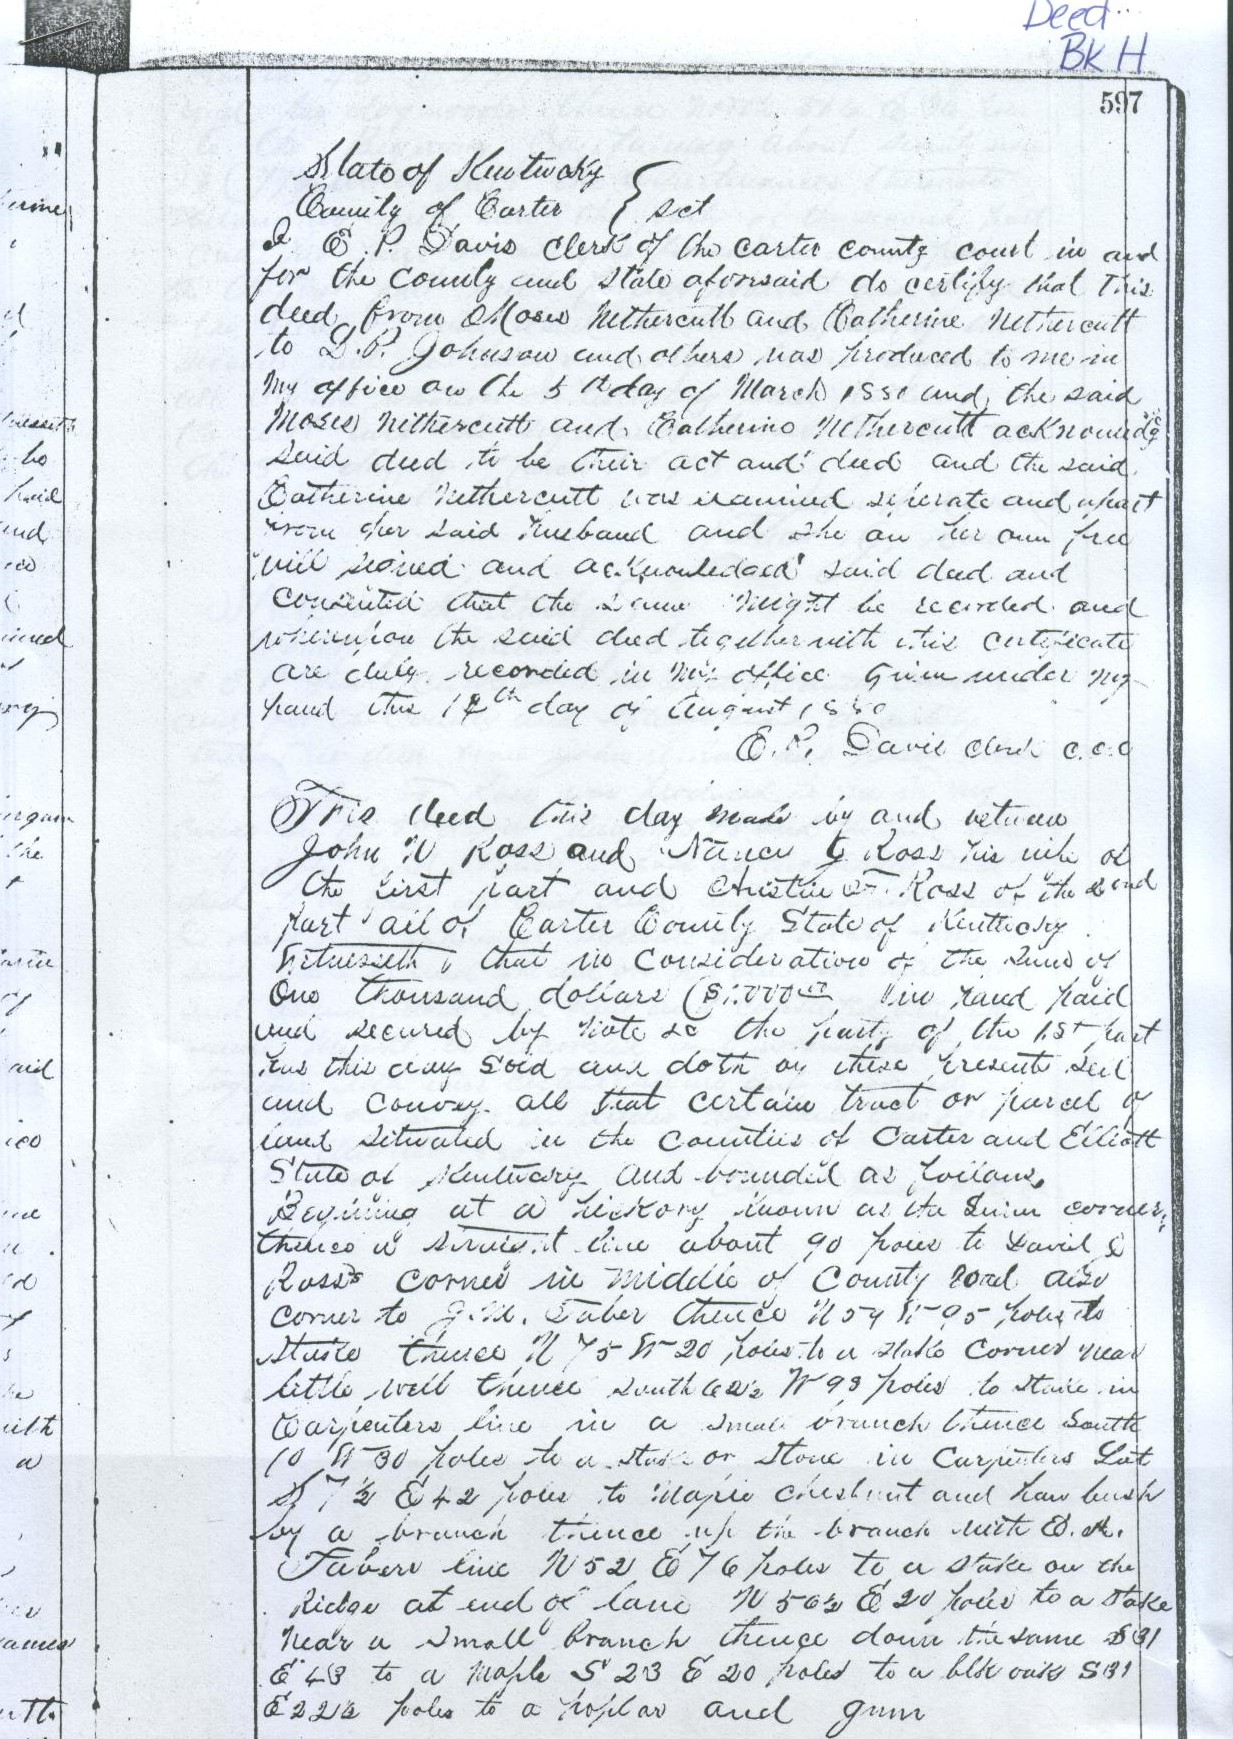 Deed
Bk H
597
State of Kentucky
County of Carter } sct
I E. P. Davis clerk of the carter county court in and
for the County and State aforesaid do certify that this
deed from Moses Nethercutt and Catherine Nethercutt
to D. P. Johnson and others was produced to me in
my office on the 5th day of March 1880 and the said
Moses Nethercutt and Catherine Nethercutt acknowledg
said deed to be their act and deed and the said
Catherine Nethercutt was examined seperate and apart
from her said husband and she on her own free
will signed and acknowledged said deed and
consented that the same might be recorded and
whereupon the said deed together with this certificate
are duly recorded in my office Given under my
hand this 12th day of August 1880
E. P. Davis clerk c.c.c
This deed this day made by and between
John W Ross and Nancy Ross his wife of
the first part and Ross of the 2ond
part all of Carter County State of Kentucky
Witnesseth that in consideration of the sum of
One thousand dollars ($1.000.00 in hand paid
and secured by note so the party of the 1st part
has this day sold and doth by these presents sell
and convey all that certain tract or parcel of
land situated in the counties of Carter and Elliott
State of Kentucky and bounded as follows,
Begining at a hickory known as the corner,
thence a straight line about 90 poles to David
Ross corner in middle of County road also
corner to J. M. Taber thence N 54 W 95 poles to
stake thence N 75 W 20 poles to a stake corner near
little well thence south 62½ W 93 poles to stake in
Carpenters line in a small branch thence South
10 W 30 poles to a stake or stone in Carpenters Lot
S 7½ E 42 poles to maple chestnut and haw bush
by a branch thence up the branch with
Tabers line N 52 E 76 poles to a stake on the
Ridge at end of lane N 56½ E 20 poles to a stake
near a small branch thence down the same S 31
E 43 to a maple S 23 E 20 poles to a blk oak S 31
E 22½ poles to a poplar and gum